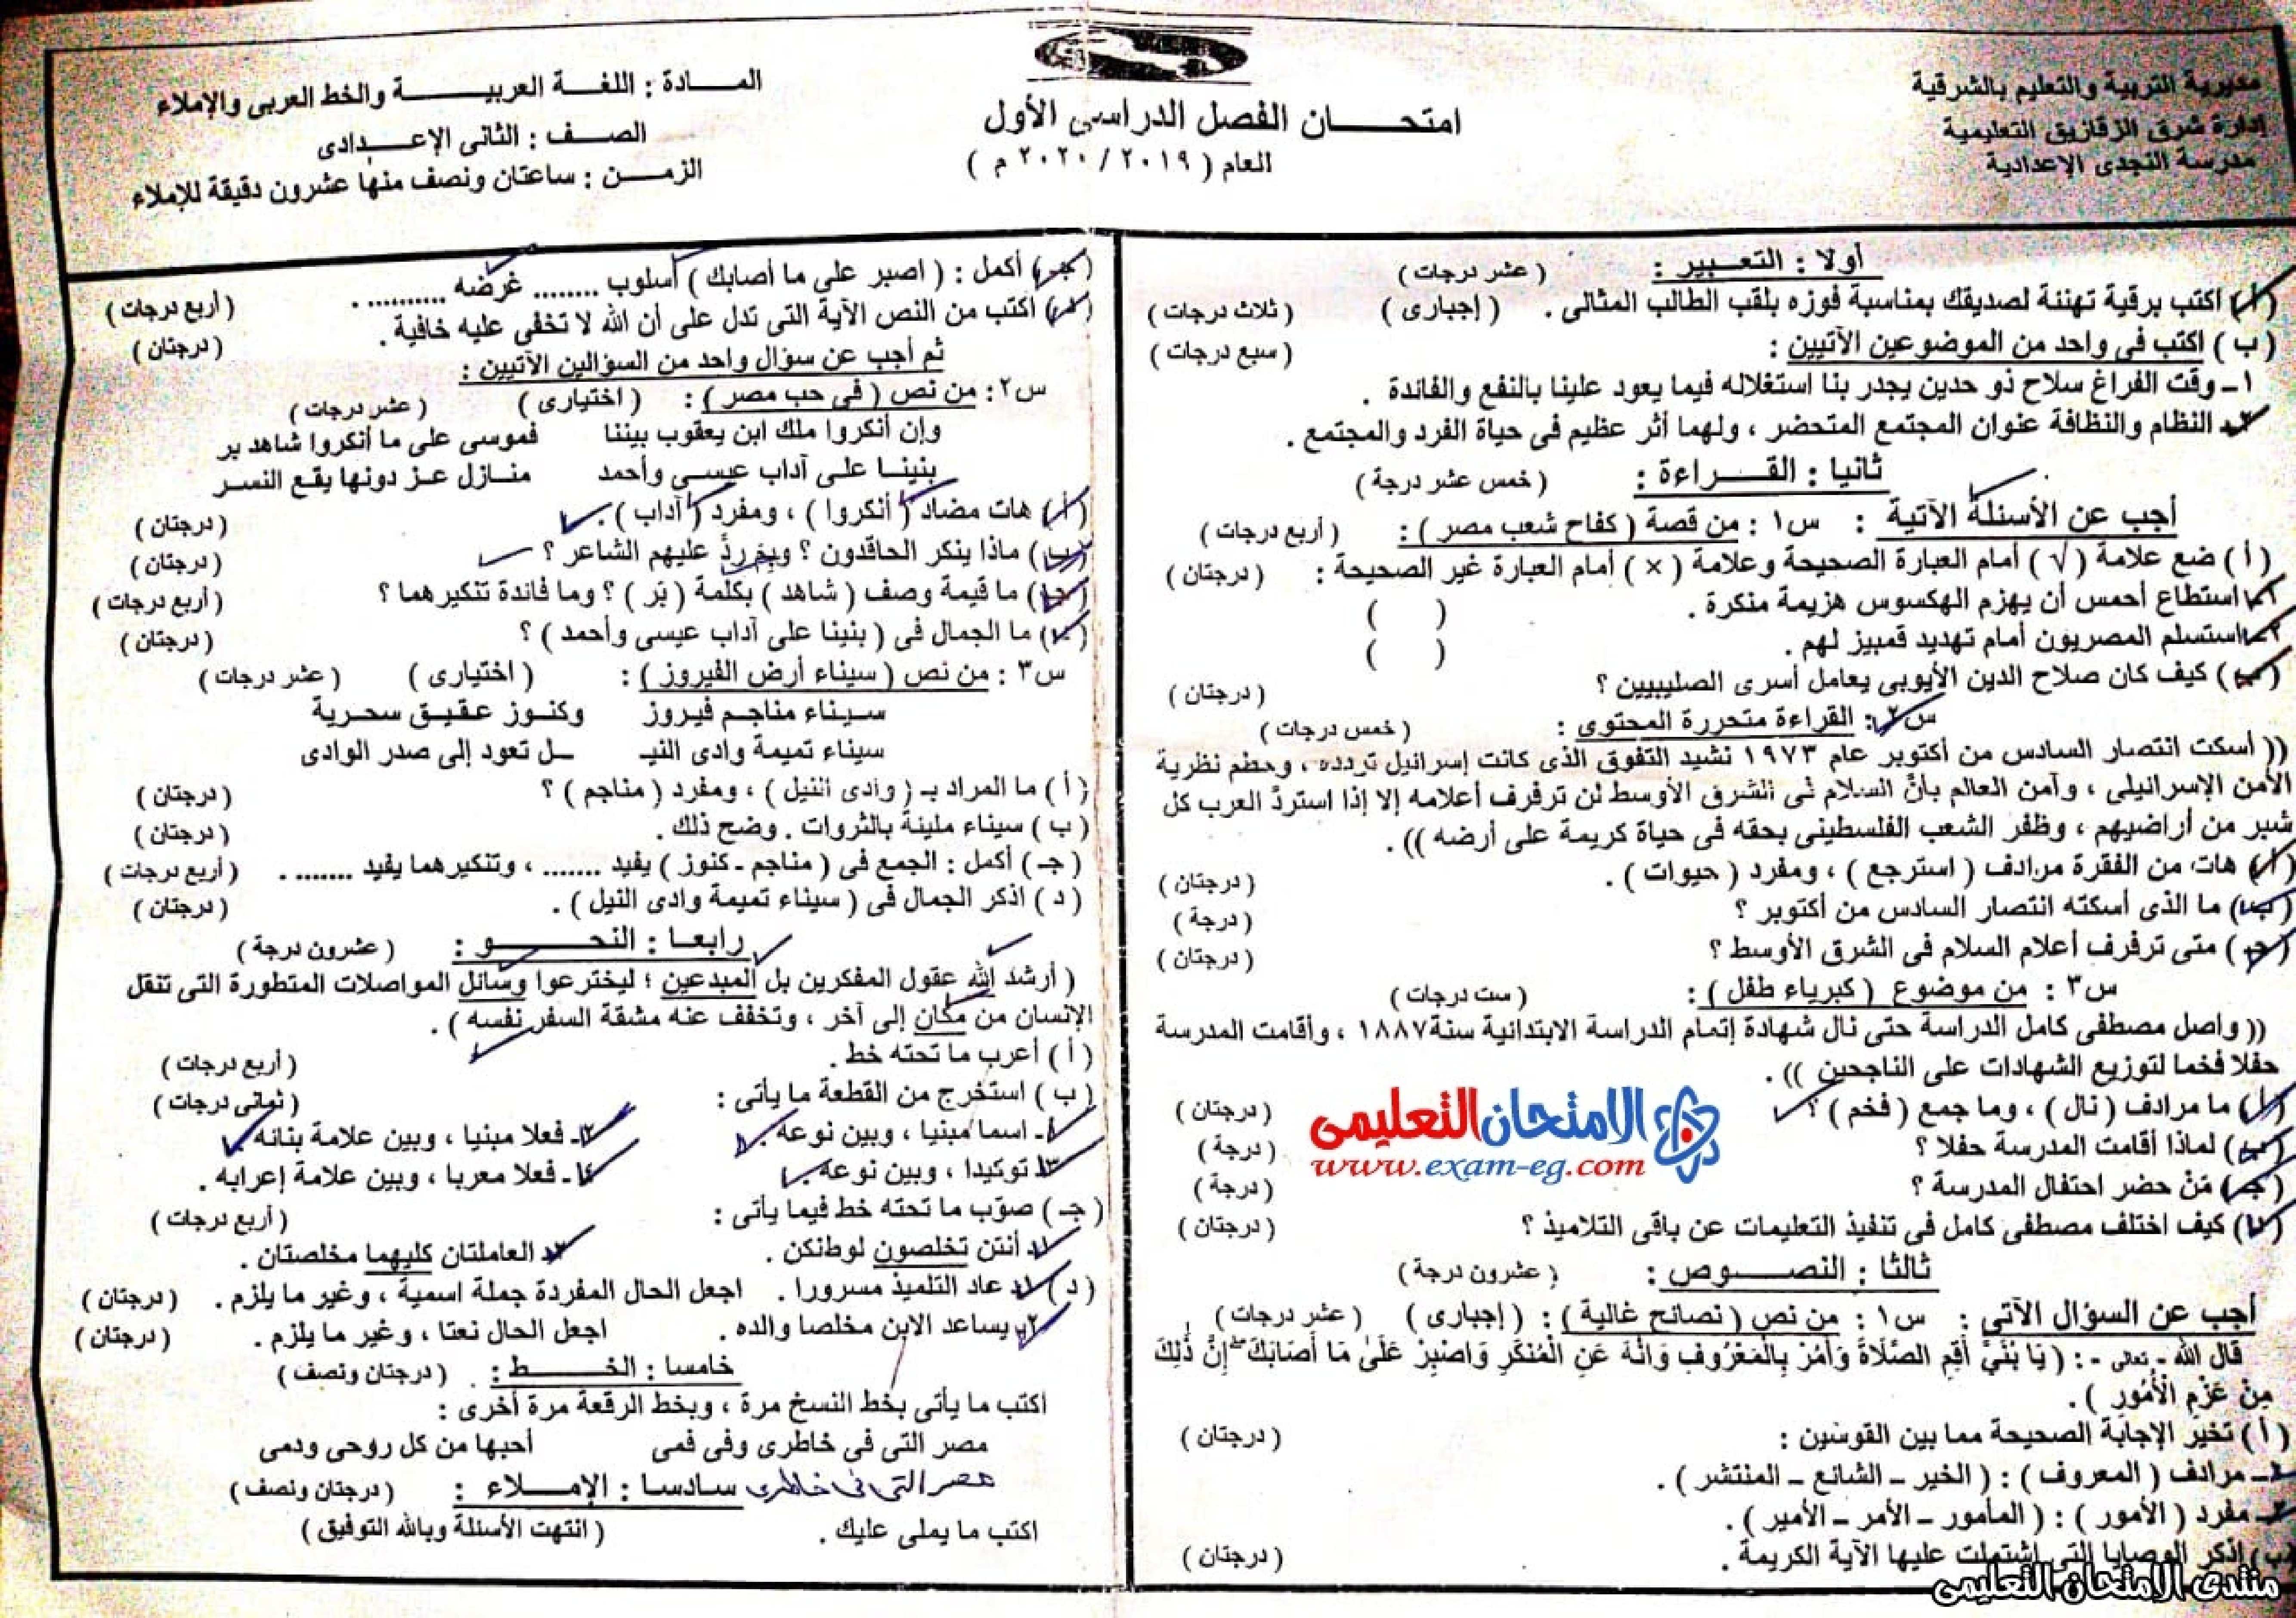 مديرية التربية والتعليم بالشرقية
إدارة شرق الزقازيق التعليمية
مدرسة النجدى الإعدادية
امتحان الفصل الدراسى الأول
العام ( ٢٠١٩ / ٢٠٢٠ م )
المادة : اللغة العربية والخط العربى والإملاء
الصف : الثانى الإعدادى
الزمن : ساعتان ونصف منها عشرون دقيقة للإملاء
أولا : التعبير : ( عشر درجات )
( أ ) اكتب برقية تهنئة لصديقك بمناسبة فوزه بلقب الطالب المثالى . ( إجبارى ) ( ثلاث درجات )
( ب ) اكتب فى واحد من الموضوعين الآتيين : ( سبع درجات )
١ ـ وقت الفراغ سلاح ذو حدين يجدر بنا استغلاله فيما يعود علينا بالنفع والفائدة .
٢ـ النظام والنظافة عنوان المجتمع المتحضر ، ولهما أثر عظيم فى حياة الفرد والمجتمع .
ثانيا : القراءة : ( خمس عشر درجة )
أجب عن الأسئلة الآتية : س١ : من قصة ( كفاح شعب مصر ) : ( أربع درجات )
( أ ) ضع علامة ( √ ) أمام العبارة الصحيحة وعلامة ( × ) أمام العبارة غير الصحيحة : ( درجتان )
١ـ استطاع أحمس أن يهزم الهكسوس هزيمة منكرة . ( )
٢ـ استسلم المصريون أمام تهديد قمبيز لهم . ( )
( ب ) كيف كان صلاح الدين الأيوبى يعامل أسرى الصليبيين ؟ ( درجتان )
س٢ : القراءة متحررة المحتوى : ( خمس درجات )
(( أسكت انتصار السادس من أكتوبر عام ١٩٧٣ نشيد التفوق الذى كانت إسرائيل تردده ، وحطم نظرية
الأمن الإسرائيلى ، وآمن العالم بأنَّ السلام فى الشرق الأوسط لن ترفرف أعلامه إلا إذا استردَّ العرب كل
شبر من أراضيهم ، وظفر الشعب الفلسطينى بحقه فى حياة كريمة على أرضه )) .
( أ ) هات من الفقرة مرادف ( استرجع ) ، ومفرد ( حيوات ) . ( درجتان )
( ب ) ما الذى أسكته انتصار السادس من أكتوبر ؟ ( درجة )
( جـ ) متى ترفرف أعلام السلام فى الشرق الأوسط ؟ ( درجتان )
س٣ : من موضوع ( كبرياء طفل ) : ( ست درجات )
(( واصل مصطفى كامل الدراسة حتى نال شهادة إتمام الدراسة الابتدائية سنة ١٨٨٧ ، وأقامت المدرسة
حفلا فخما لتوزيع الشهادات على الناجحين )) .
( أ ) ما مرادف ( نال ) ، وما جمع ( فخم ) ؟ ( درجتان )
( ب ) لماذا أقامت المدرسة حفلا ؟ ( درجة )
( جـ ) مَنْ حضر احتفال المدرسة ؟ ( درجة )
( د ) كيف اختلف مصطفى كامل فى تنفيذ التعليمات عن باقى التلاميذ ؟ ( درجتان )
الامتحان التعليمى
www.exam-eg.com
ثالثا : النصوص : ( عشرون درجة )
أجب عن السؤال الآتى : س١ : من نص ( نصائح غالية ) : ( إجبارى ) ( عشر درجات )
قال الله - تعالى - : ( يَا بُنَيَّ أَقِمِ الصَّلَاةَ وَأْمُرْ بِالْمَعْرُوفِ وَانْهَ عَنِ الْمُنكَرِ وَاصْبِرْ عَلَىٰ مَا أَصَابَكَ ۖ إِنَّ ذَٰلِكَ
مِنْ عَزْمِ الْأُمُورِ ) .
( أ ) تخير الإجابة الصحيحة مما بين القوسين : ( درجتان )
١ـ مرادف ( المعروف ) : ( الخير ـ الشائع ـ المنتشر ) .
٢ـ مفرد ( الأمور ) : ( المأمور ـ الأمر ـ الأمير ) .
(ب) اذكر الوصايا التى اشتملت عليها الآية الكريمة . ( درجتان )
( جـ ) أكمل : ( اصبر على ما أصابك ) أسلوب ........ غرضه .......... . ( أربع درجات )
( د ) اكتب من النص الآية التى تدل على أن الله لا تخفى عليه خافية . ( درجتان )
ثم أجب عن سؤال واحد من السؤالين الآتيين :
س٢ : من نص ( فى حب مصر ) : ( اختيارى ) ( عشر درجات )
وإن أنكروا ملك ابن يعقوب بيننا فموسى على ما أنكروا شاهد بر
بنينا على آداب عيسى وأحمد منازل عز دونها يقع النسر
( أ ) هات مضاد ( أنكروا ) ، ومفرد ( آداب ) . ( درجتان )
( ب ) ماذا ينكر الحاقدون ؟ وبم ردَّ عليهم الشاعر ؟ ( درجتان )
( جـ ) ما قيمة وصف ( شاهد ) بكلمة ( بَر ) ؟ وما فائدة تنكيرهما ؟ ( أربع درجات )
( د ) ما الجمال فى ( بنينا على آداب عيسى وأحمد ) ؟ ( درجتان )
س٣ : من نص ( سيناء أرض الفيروز ) : ( اختيارى ) ( عشر درجات )
سيناء مناجم فيروز وكنوز عقيق سحرية
سيناء تميمة وادى النيـ ـل تعود إلى صدر الوادى
( أ ) ما المراد بـ ( وادى النيل ) ، ومفرد ( مناجم ) ؟ ( درجتان )
( ب ) سيناء مليئة بالثروات . وضح ذلك . ( درجتان )
( جـ ) أكمل : الجمع فى ( مناجم ـ كنوز ) يفيد ....... ، وتنكيرهما يفيد ....... . ( أربع درجات )
( د ) اذكر الجمال فى ( سيناء تميمة وادى النيل ) . ( درجتان )
رابعا : النحو : ( عشرون درجة )
( أرشد الله عقول المفكرين بل المبدعين ؛ ليخترعوا وسائل المواصلات المتطورة التى تنقل
الإنسان من مكان إلى آخر ، وتخفف عنه مشقة السفر نفسه ) .
( أ ) أعرب ما تحته خط . ( أربع درجات )
( ب ) استخرج من القطعة ما يأتى : ( ثمانى درجات )
١ـ اسما مبنيا ، وبين نوعه . ٢ـ فعلا مبنيا ، وبين علامة بنائه .
٣ـ توكيدا ، وبين نوعه . ٤ـ فعلا معربا ، وبين علامة إعرابه .
( جـ ) صوّب ما تحته خط فيما يأتى : ( أربع درجات )
١ـ أنتن تخلصون لوطنكن . ٢ـ العاملتان كليهما مخلصتان .
( د ) ١ـ عاد التلميذ مسرورا . اجعل الحال المفردة جملة اسمية ، وغير ما يلزم . ( درجتان )
٢ـ يساعد الابن مخلصا والده . اجعل الحال نعتا ، وغير ما يلزم . ( درجتان )
خامسا : الخط : ( درجتان ونصف )
اكتب ما يأتى بخط النسخ مرة ، وبخط الرقعة مرة أخرى :
مصر التى فى خاطرى وفى فمى أحبها من كل روحى ودمى
مصر التى فى خاطرى
سادسا : الإملاء : ( درجتان ونصف )
اكتب ما يملى عليك . ( انتهت الأسئلة وبالله التوفيق )
منتدى الامتحان التعليمى